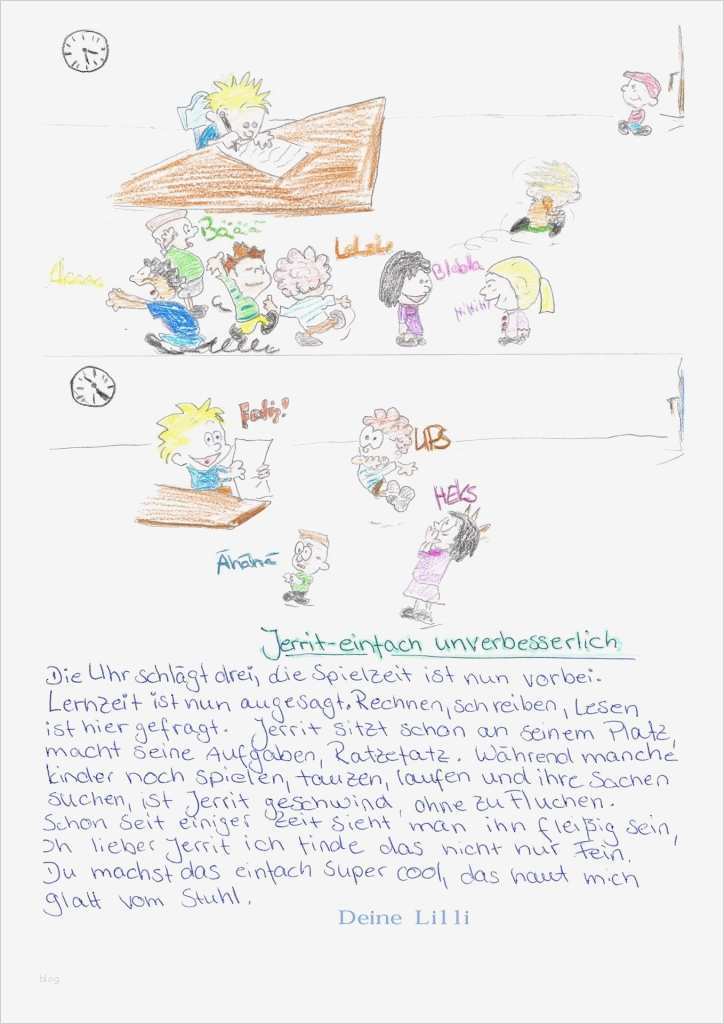 Bäää
LaLaLa
Blabla
Hihihi
Fertig!
UPS
HEKS
Ähähä
Jerrit-einfach unverbesserlich
Die Uhr schlägt drei, die Spielzeit ist nun vorbei.
Lernzeit ist nun angesagt. Rechnen, schreiben, Lesen
ist hier gefragt. Jerrit sitzt schon an seinem Platz,
macht seine Aufgaben, Ratzefatz. Während manche
Kinder noch spielen, tauzen, laufen und ihre Sachen
suchen, ist Jerrit geschwind, ohne zu Fluchen.
Schon seit einiger Zeit sieht man ihn fleißig sein,
Oh lieber Jerrit ich finde das nicht nur Fein.
Du machst das einfach super cool, das haut mich
glatt vom Stuhl.
Deine Lilli
blog